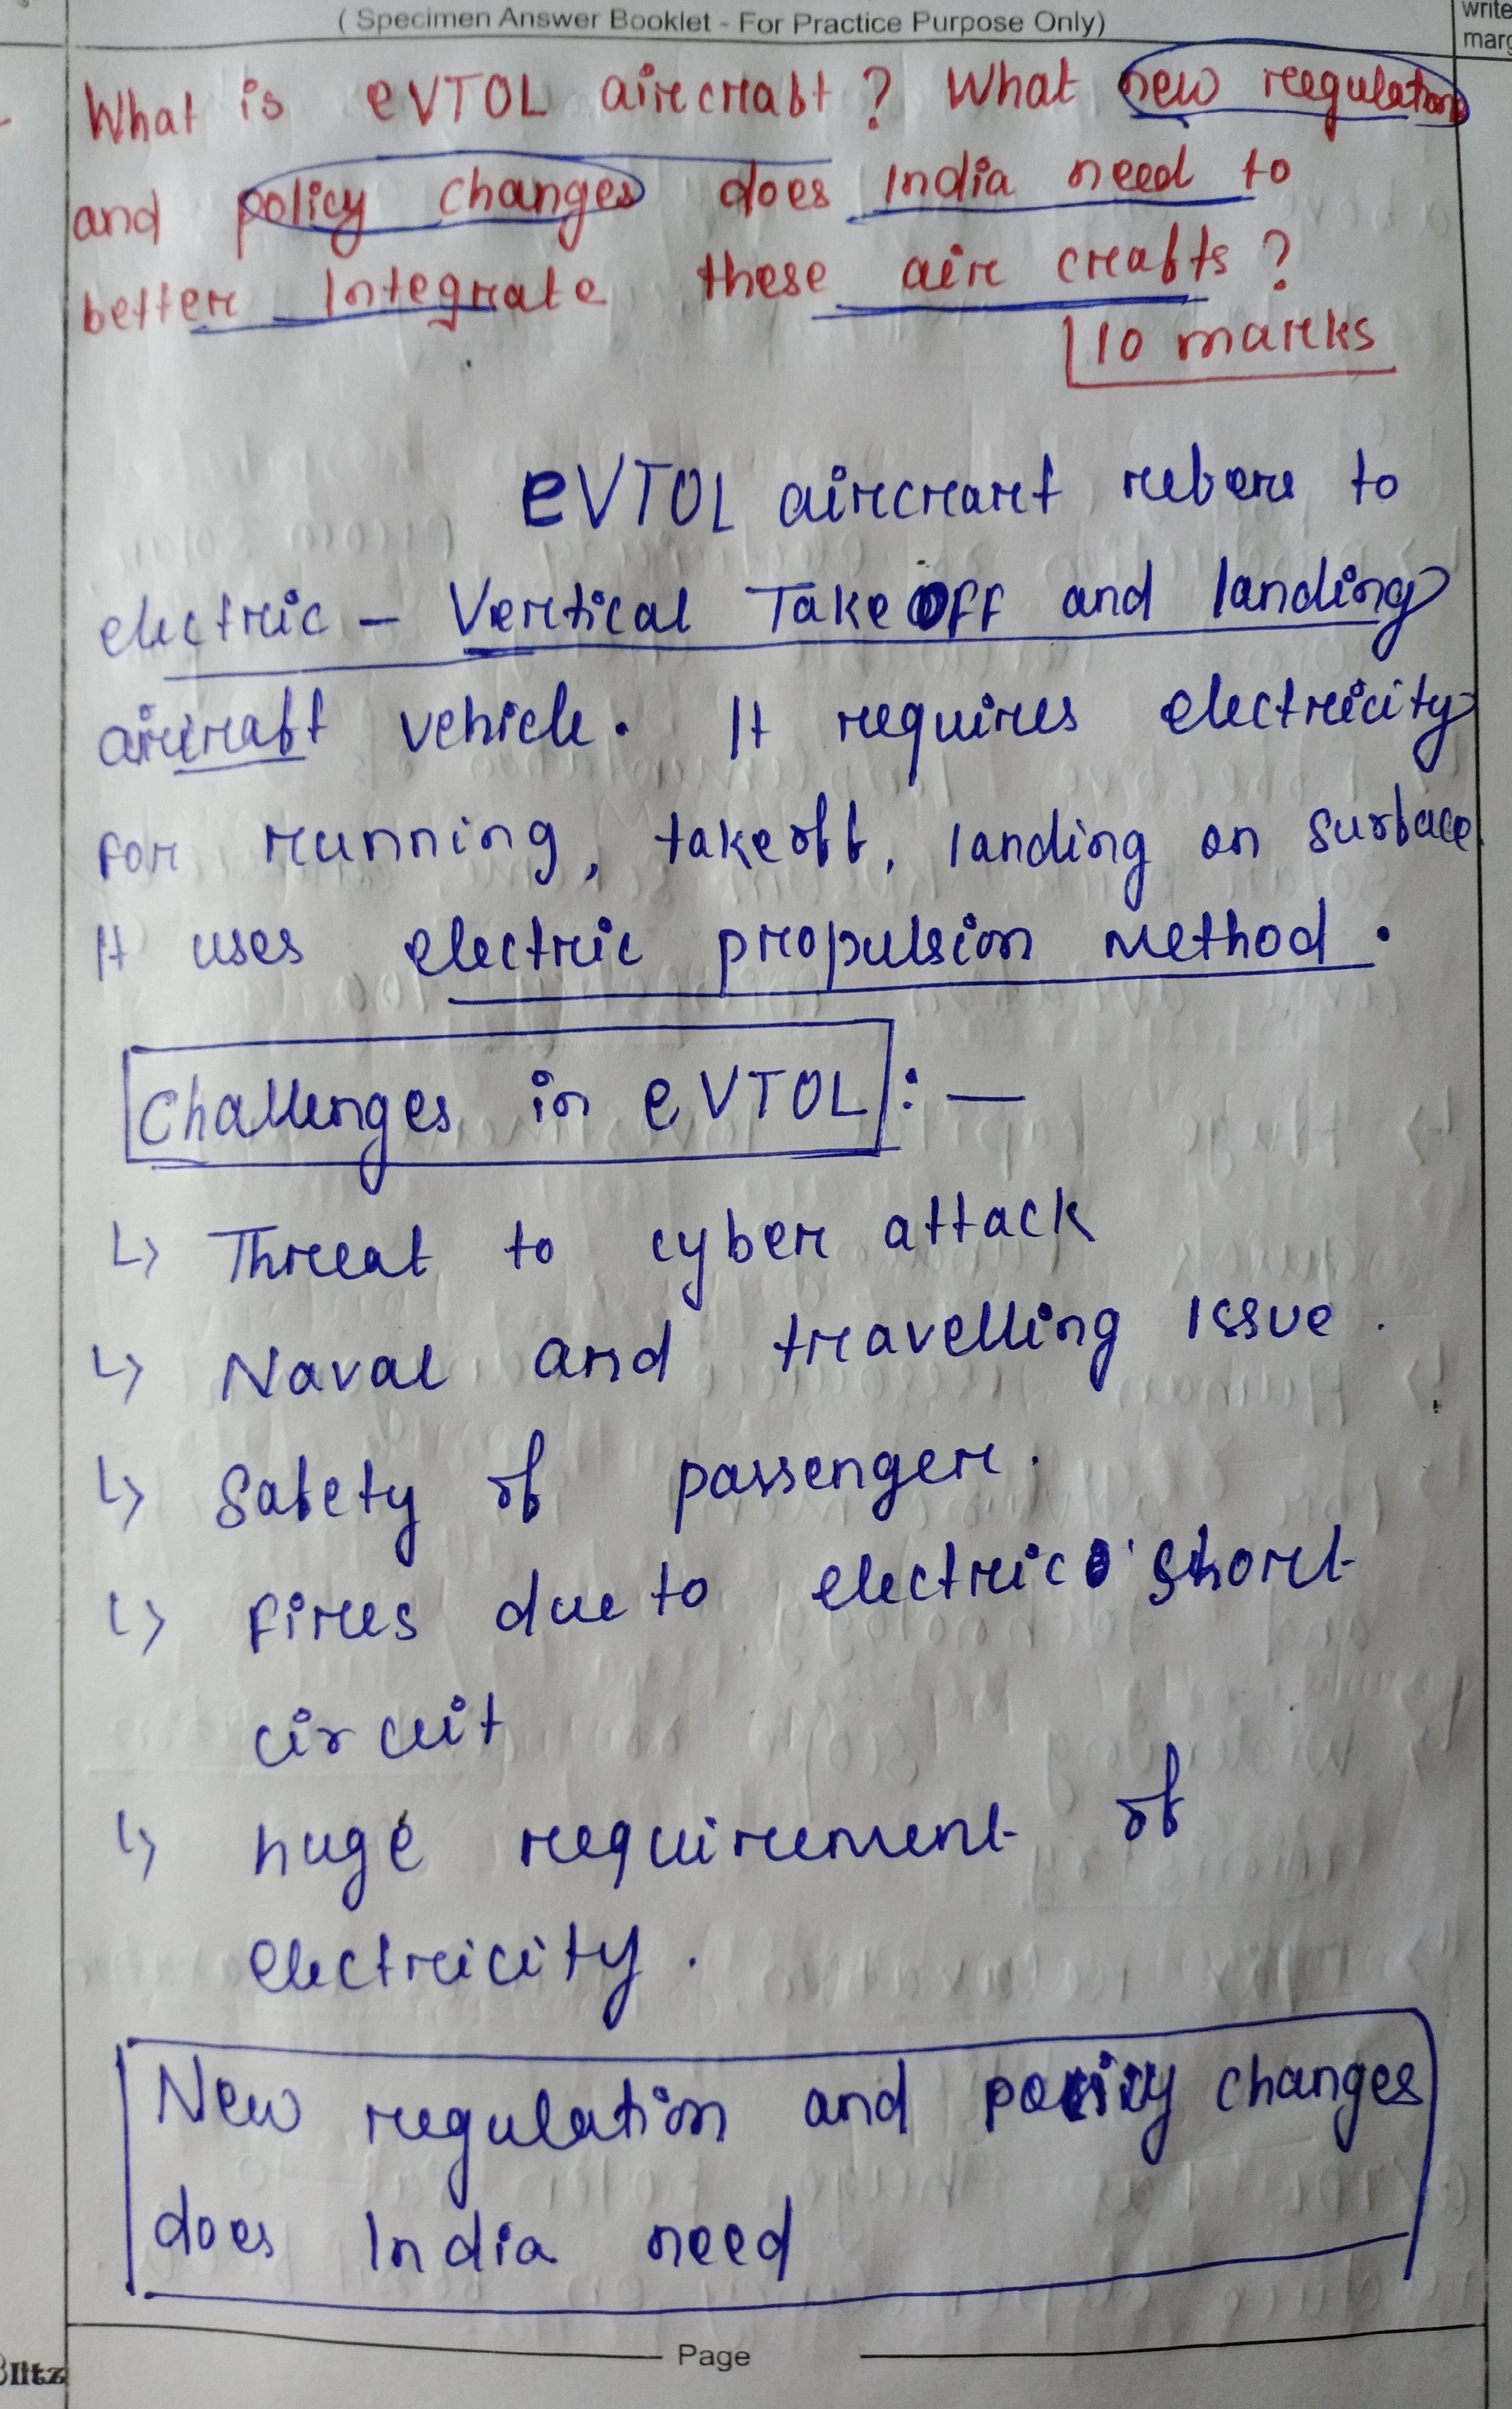 ( Specimen Answer Booklet - For Practice Purpose Only)
write
marg
What is eVTOL aircraft ? What new regulation
and policy changes does India need to
better Integrate these air crafts ?
10 marks
eVTOL aircraft refers to
electric - Vertical TakeOFF and landing
aircraft vehicle. It requires electricity
for running, takeoff, landing on surface.
It uses electric propulsion method.
Challenges in eVTOL : —
↳ Threat to cyber attack
↳ Naval and travelling issue.
↳ Safety of passenger.
↳ Fires due to electric short
circuit
↳ huge requirement of
electricity.
New regulation and policy changes
does India need
Page
Blitz